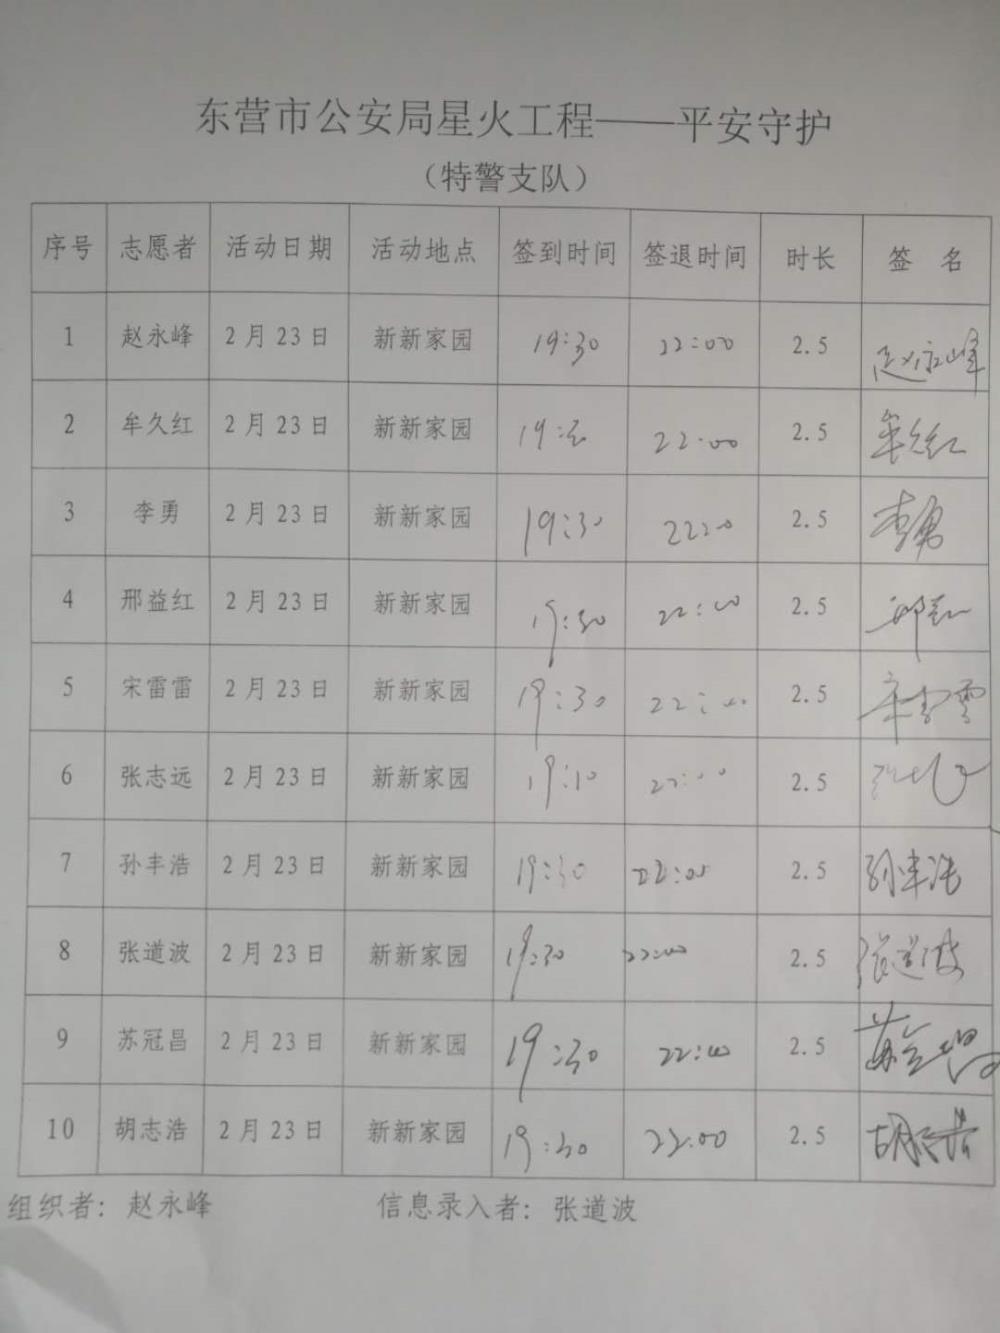 东营市公安局星火工程——平安守护
（特警支队）
序号 志愿者 活动日期 活动地点 签到时间 签退时间 时长 签 名
1 赵永峰 2月23日 新新家园 19:30 22:00 2.5 赵永峰
2 牟久红 2月23日 新新家园 19:30 22:00 2.5 牟久红
3 李勇 2月23日 新新家园 19:30 22:00 2.5 李勇
4 邢益红 2月23日 新新家园 19:30 22:00 2.5
5 宋雷雷 2月23日 新新家园 19:30 22:00 2.5 宋雷雷
6 张志远 2月23日 新新家园 22:00 2.5
7 孙丰浩 2月23日 新新家园 19:30 22:00 2.5 孙丰浩
8 张道波 2月23日 新新家园 19:30 22:00 2.5 张道波
9 苏冠昌 2月23日 新新家园 19:30 22:00 2.5 苏冠昌
10 胡志浩 2月23日 新新家园 19:30 22:00 2.5 胡志浩
组织者：赵永峰 信息录入者：张道波